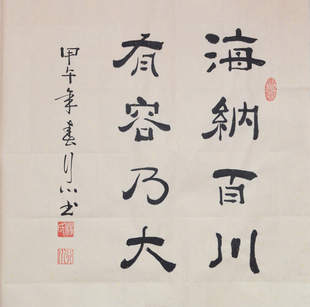 海納百川
有容乃大
甲午年春月心書